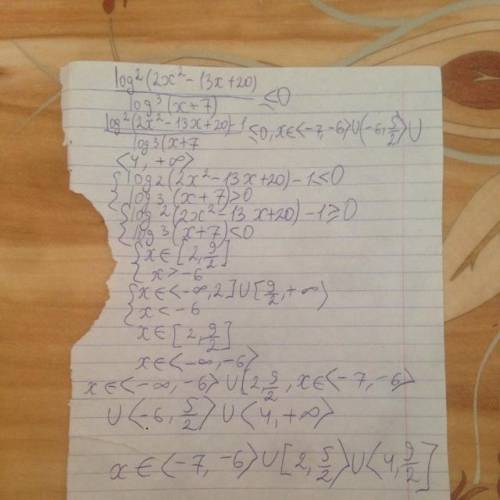 log²(2x²-13x+20)
log³(x+7) ≤0
log²(2x²-13x+20)-1
log³(x+7 ≤0, x∈<-7,-6>∪(-6,5/2)∪
<4,+∞>
{log2(2x²-13x+20)-1≤0
log3(x+7)>0
{log2(2x²-13x+20)-1≥0
log3(x+7)<0
{x∈[2,9/2]
x>-6
{x∈<-∞,2]∪[9/2,+∞)
x<-6
x∈[2,9/2]
x∈<-∞,-6>
x∈<-∞,-6>∪[2,9/2, x∈<-7,-6>
∪<-6,5/2)∪<4,+∞)
x∈<-7,-6>∪[2,5/2)∪<4,9/2]